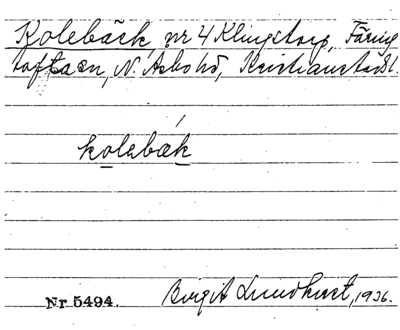 Kolebäck, nr 4 Klingstorp, Färing
tofta sn, N. Åsbo hd, Kristianstads l.
kolebäk
Nr 5494. Birgit Lundkvist, 1936.